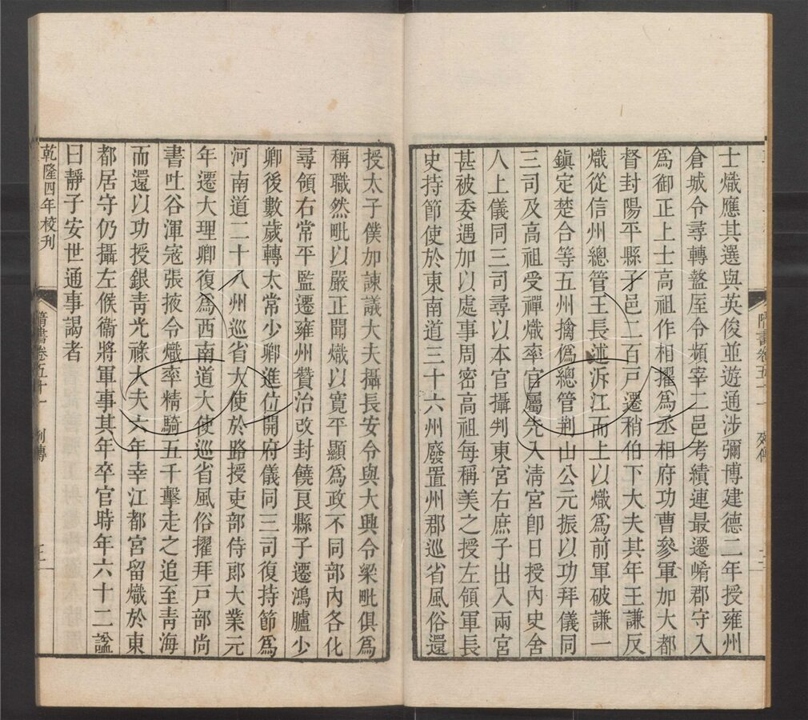 士熾應其選與英俊並遊通涉彌博建德二年授雍州
倉城令尋轉盩厔令頻宰二邑考績連最遷崤郡守入
為御正上士高祖作相擢為丞相府功曹參軍加大都
督封陽平縣子邑二百戶遷稍伯下大夫其年王謙反
熾從信州總管王長述泝江而上以熾為前軍破謙一
鎮定楚合等五州擒偽總管荆山公元振以功拜儀同
三司及高祖受禪熾率官屬先入清宮卽日授內史舍
人上儀同三司尋以本官攝判東宮右庶子出入兩宮
甚被委遇加以處事周密高祖每稱美之授左領軍長
史持節使於東南道三十六州廢置州郡巡省風俗還
授太子僕加諫議大夫攝長安令與大興令梁毗俱為
稱職然毗以嚴正聞熾以寬平顯為政不同部內各化
尋領右常平監遷雍州贊治改封饒良縣子遷鴻臚少
卿後數歲轉太常少卿進位開府儀同三司復持節為
河南道二十八州巡省大使於路授吏部侍郎大業元
年遷大理卿復為西南道大使巡省風俗擢拜戶部尚
書吐谷渾寇張掖令熾率精騎五千擊走之追至青海
而還以功授銀青光祿大夫六年幸江都宮留熾於東
都居守仍攝左候衞將軍事其年卒官時年六十二諡
曰靜子安世通事謁者
乾隆四年校刊
隋書卷五十一 列傳